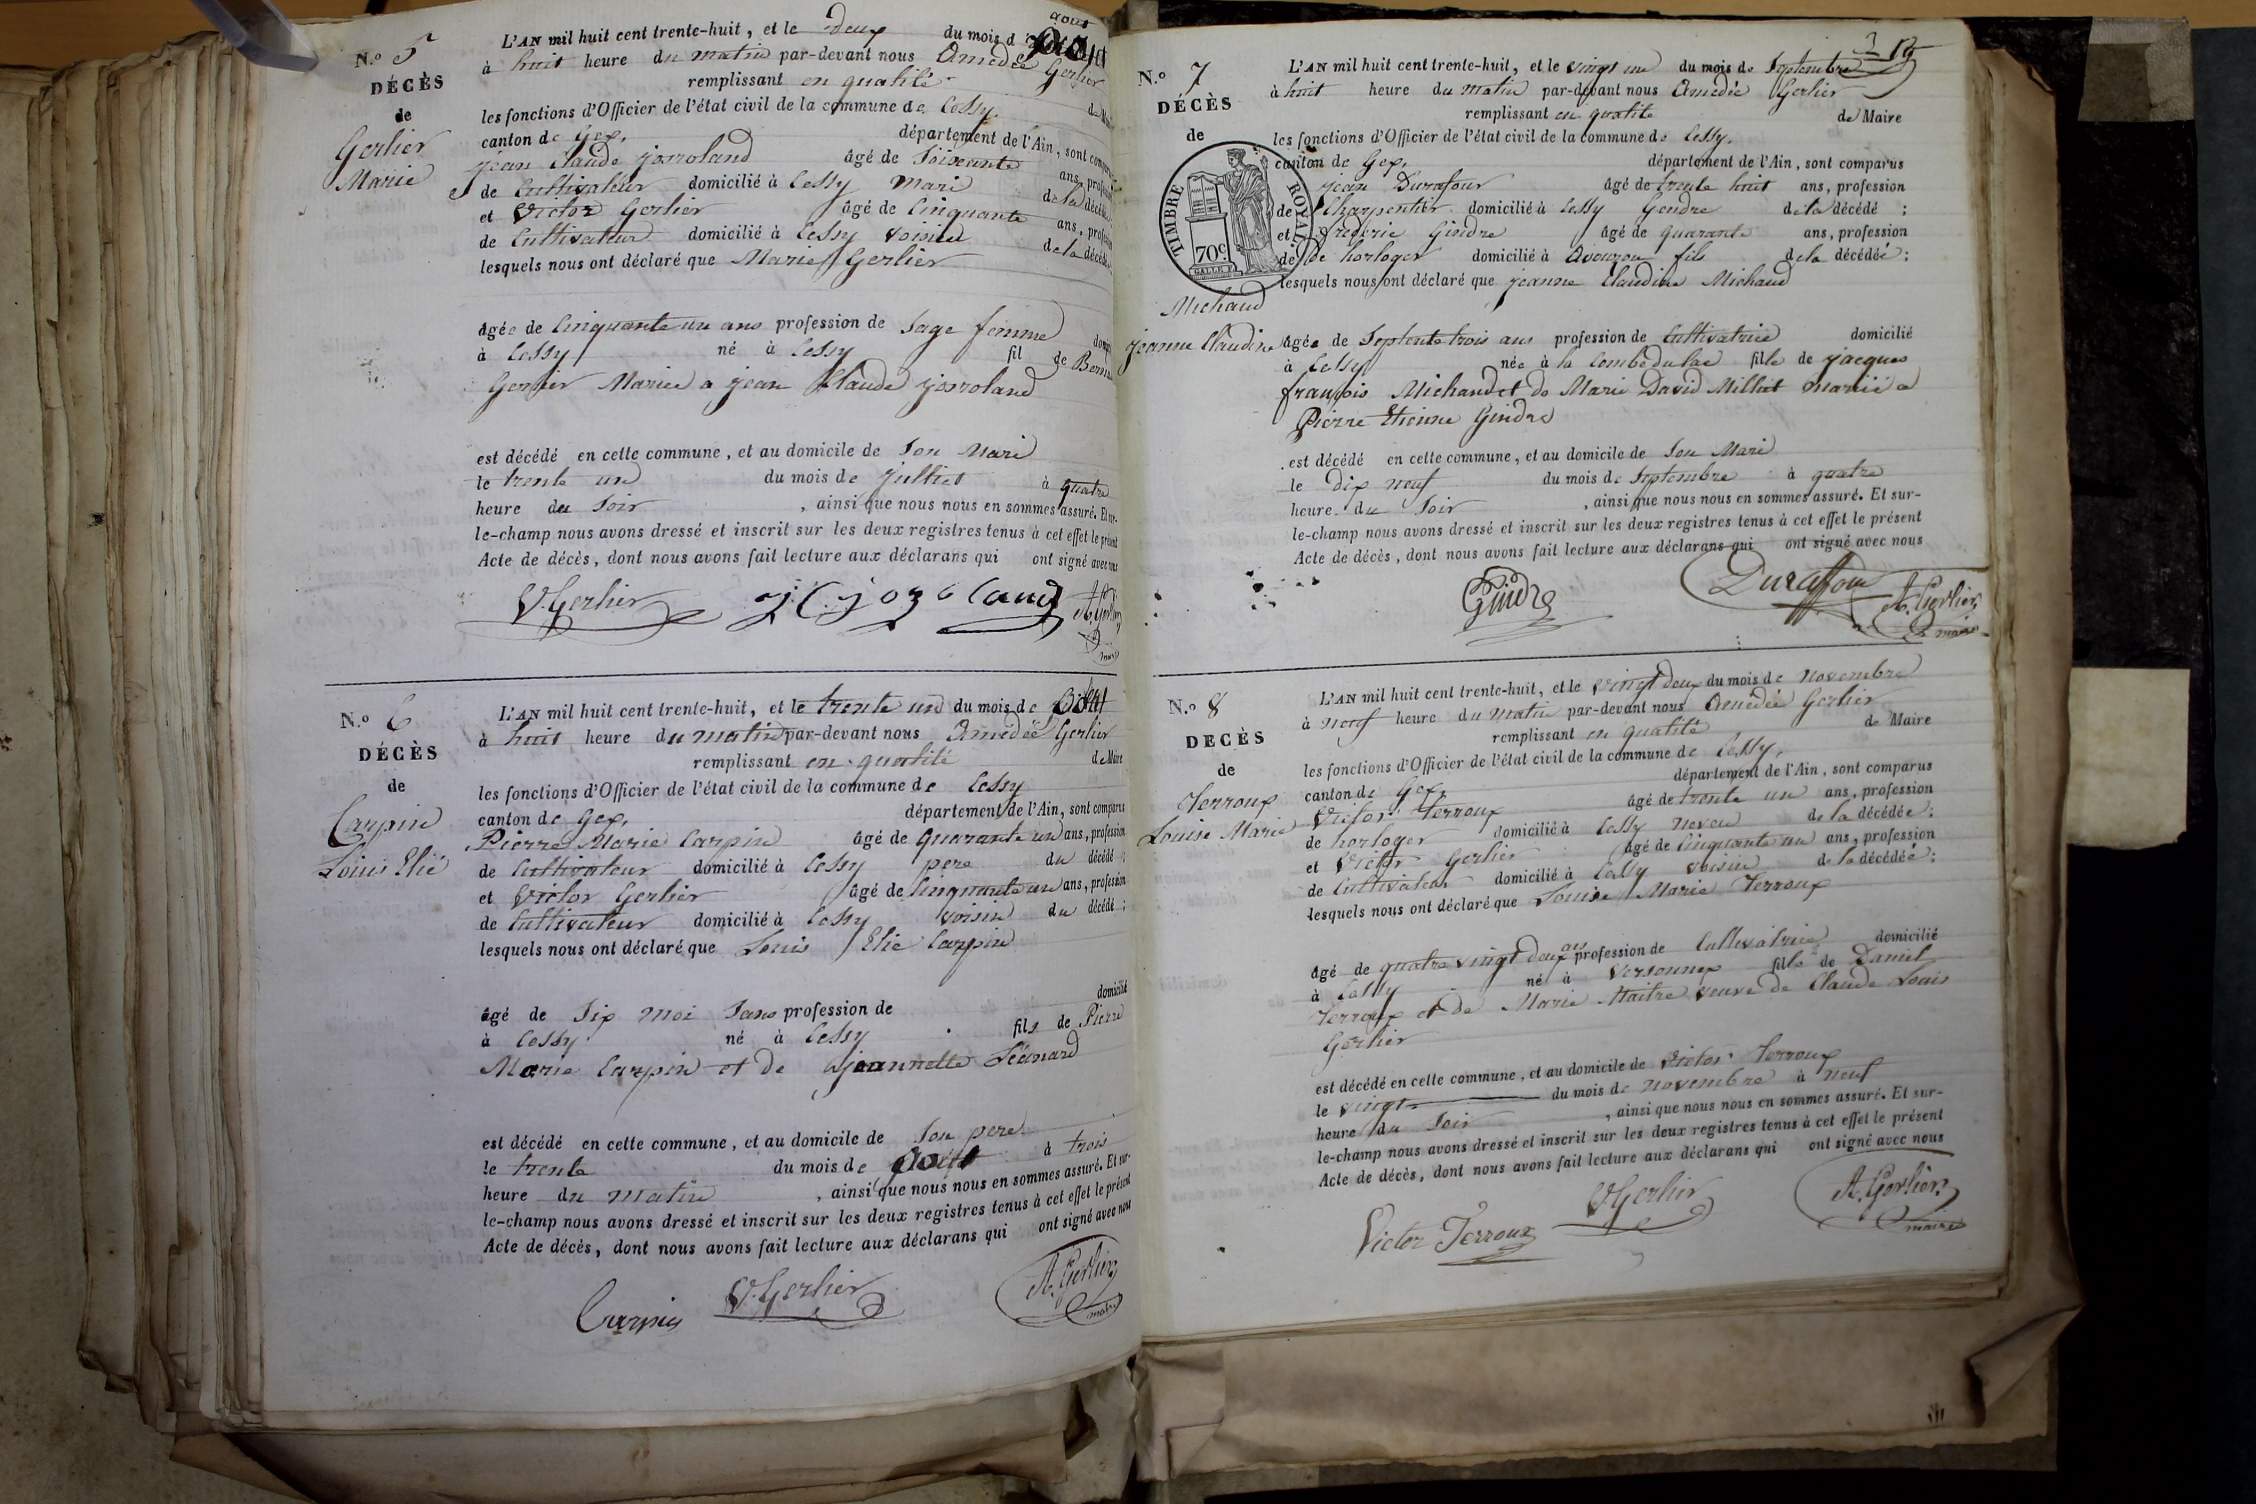 N.o 5
DÉCÈS
de
Gerlier
Marie
L'AN mil huit cent trente-huit, et le deux du mois d août
à huit heure du matin par-devant nous Amedée Gerlier
remplissant en qualité de Maire
les fonctions d'Officier de l'état civil de la commune de Cessy,
canton de Gex, département de l'Ain, sont comparus
jean Claude josroland âgé de soixante ans, profession
de Cultivateur domicilié à Cessy Mari de la décédée
et Victor Gerlier âgé de Cinquante ans, profession
de Cultivateur domicilié à Cessy voisin de la décédée
lesquels nous ont déclaré que Marie Gerlier
âgée de Cinquante un ans profession de Sage femme
à Cessy né à Cessy fil de
Gerlier Mariée a jean Claude josroland
est décédé en cette commune, et au domicile de Son Mari
le trente un du mois de juillet à quatre
heure du Soir, ainsi que nous nous en sommes assuré. Et sur-
le-champ nous avons dressé et inscrit sur les deux registres tenus à cet effet le présent
Acte de décès, dont nous avons fait lecture aux déclarans qui ont signé avec nous
V. Gerlier A. Gerlier
maire
N.o 6
DÉCÈS
de
Carpin
Louis Elie
L'AN mil huit cent trente-huit, et le trente un du mois de Août
à huit heure du matin par-devant nous Amedée Gerlier
remplissant en qualité de Maire
les fonctions d'Officier de l'état civil de la commune de Cessy
canton de Gex, département de l'Ain, sont comparus
Pierre Marie Carpin âgé de quarante un ans, profession
de Cultivateur domicilié à Cessy pere du décédé ;
et Victor Gerlier âgé de Cinquante un ans, profession
de Cultivateur domicilié à Cessy voisin du décédé ;
lesquels nous ont déclaré que Louis Elie Carpin
âgé de Six moi Sans profession de domicilié
à Cessy né à Cessy fils de Pierre
Marie Carpin et de jeannette Léonard
est décédé en cette commune, et au domicile de Son pere
le trente du mois de Août à trois
heure du matin, ainsi que nous nous en sommes assuré. Et sur-
le-champ nous avons dressé et inscrit sur les deux registres tenus à cet effet le présent
Acte de décès, dont nous avons fait lecture aux déclarans qui ont signé avec nous
Carpin V. Gerlier A. Gerlier
maire
N.o 7
DÉCÈS
de
TIMBRE ROYAL
70c
Michaud
jeanne Claudine
L'AN mil huit cent trente-huit, et le vingt un du mois de Septembre
à huit heure du matin par-devant nous Amedée Gerlier
remplissant en qualité de Maire
les fonctions d'Officier de l'état civil de la commune de Cessy,
canton de Gex, département de l'Ain, sont comparus
jean Durafour âgé de trente huit ans, profession
de Charpentier domicilié à Cessy Gendre de la décédé ;
et frederic Gindre âgé de quarante ans, profession
de de horloger domicilié à Avouzon fils de la décédée ;
lesquels nous ont déclaré que jeanne Claudine Michaud
âgée de Septente trois ans profession de Cultivatrice domicilié
à Cessy née à la Combe du lac fille de jacques
françois Michaud et de Marie David Millat mariée a
Pierre Etienne Gindre
est décédé en cette commune, et au domicile de Son Mari
le dix neuf du mois de Septembre à quatre
heure du Soir, ainsi que nous nous en sommes assuré. Et sur-
le-champ nous avons dressé et inscrit sur les deux registres tenus à cet effet le présent
Acte de décès, dont nous avons fait lecture aux déclarans qui ont signé avec nous
Gindre Duraffour A. Gerlier
maire
N.o 8
DECÈS
de
Terroux
Louise Marie
L'AN mil huit cent trente-huit, et le vingt deux du mois de novembre
à neuf heure du matin par-devant nous Amedée Gerlier
remplissant en qualité de Maire
les fonctions d'Officier de l'état civil de la commune de Cessy,
canton de Gex, département de l'Ain, sont comparus
Victor Terroux âgé de trente un ans, profession
de horloger domicilié à Cessy neveu de la décédée ;
et Victor Gerlier âgé de Cinquante un ans, profession
de Cultivateur domicilié à Cessy voisin de la décédée ;
lesquels nous ont déclaré que Louise Marie Terroux
âgé de quatre vingt deux ans profession de Cultivatrice domicilié
à Cessy né à Versonnex fille de Daniel
Terroux et de Marie Maitre veuve de Claude Louis
Gerlier
est décédé en cette commune, et au domicile de Victor Terroux
le vingt du mois de novembre à neuf
heure du Soir, ainsi que nous nous en sommes assuré. Et sur-
le-champ nous avons dressé et inscrit sur les deux registres tenus à cet effet le présent
Acte de décès, dont nous avons fait lecture aux déclarans qui ont signé avec nous
Victor Terroux V. Gerlier A. Gerlier
maire